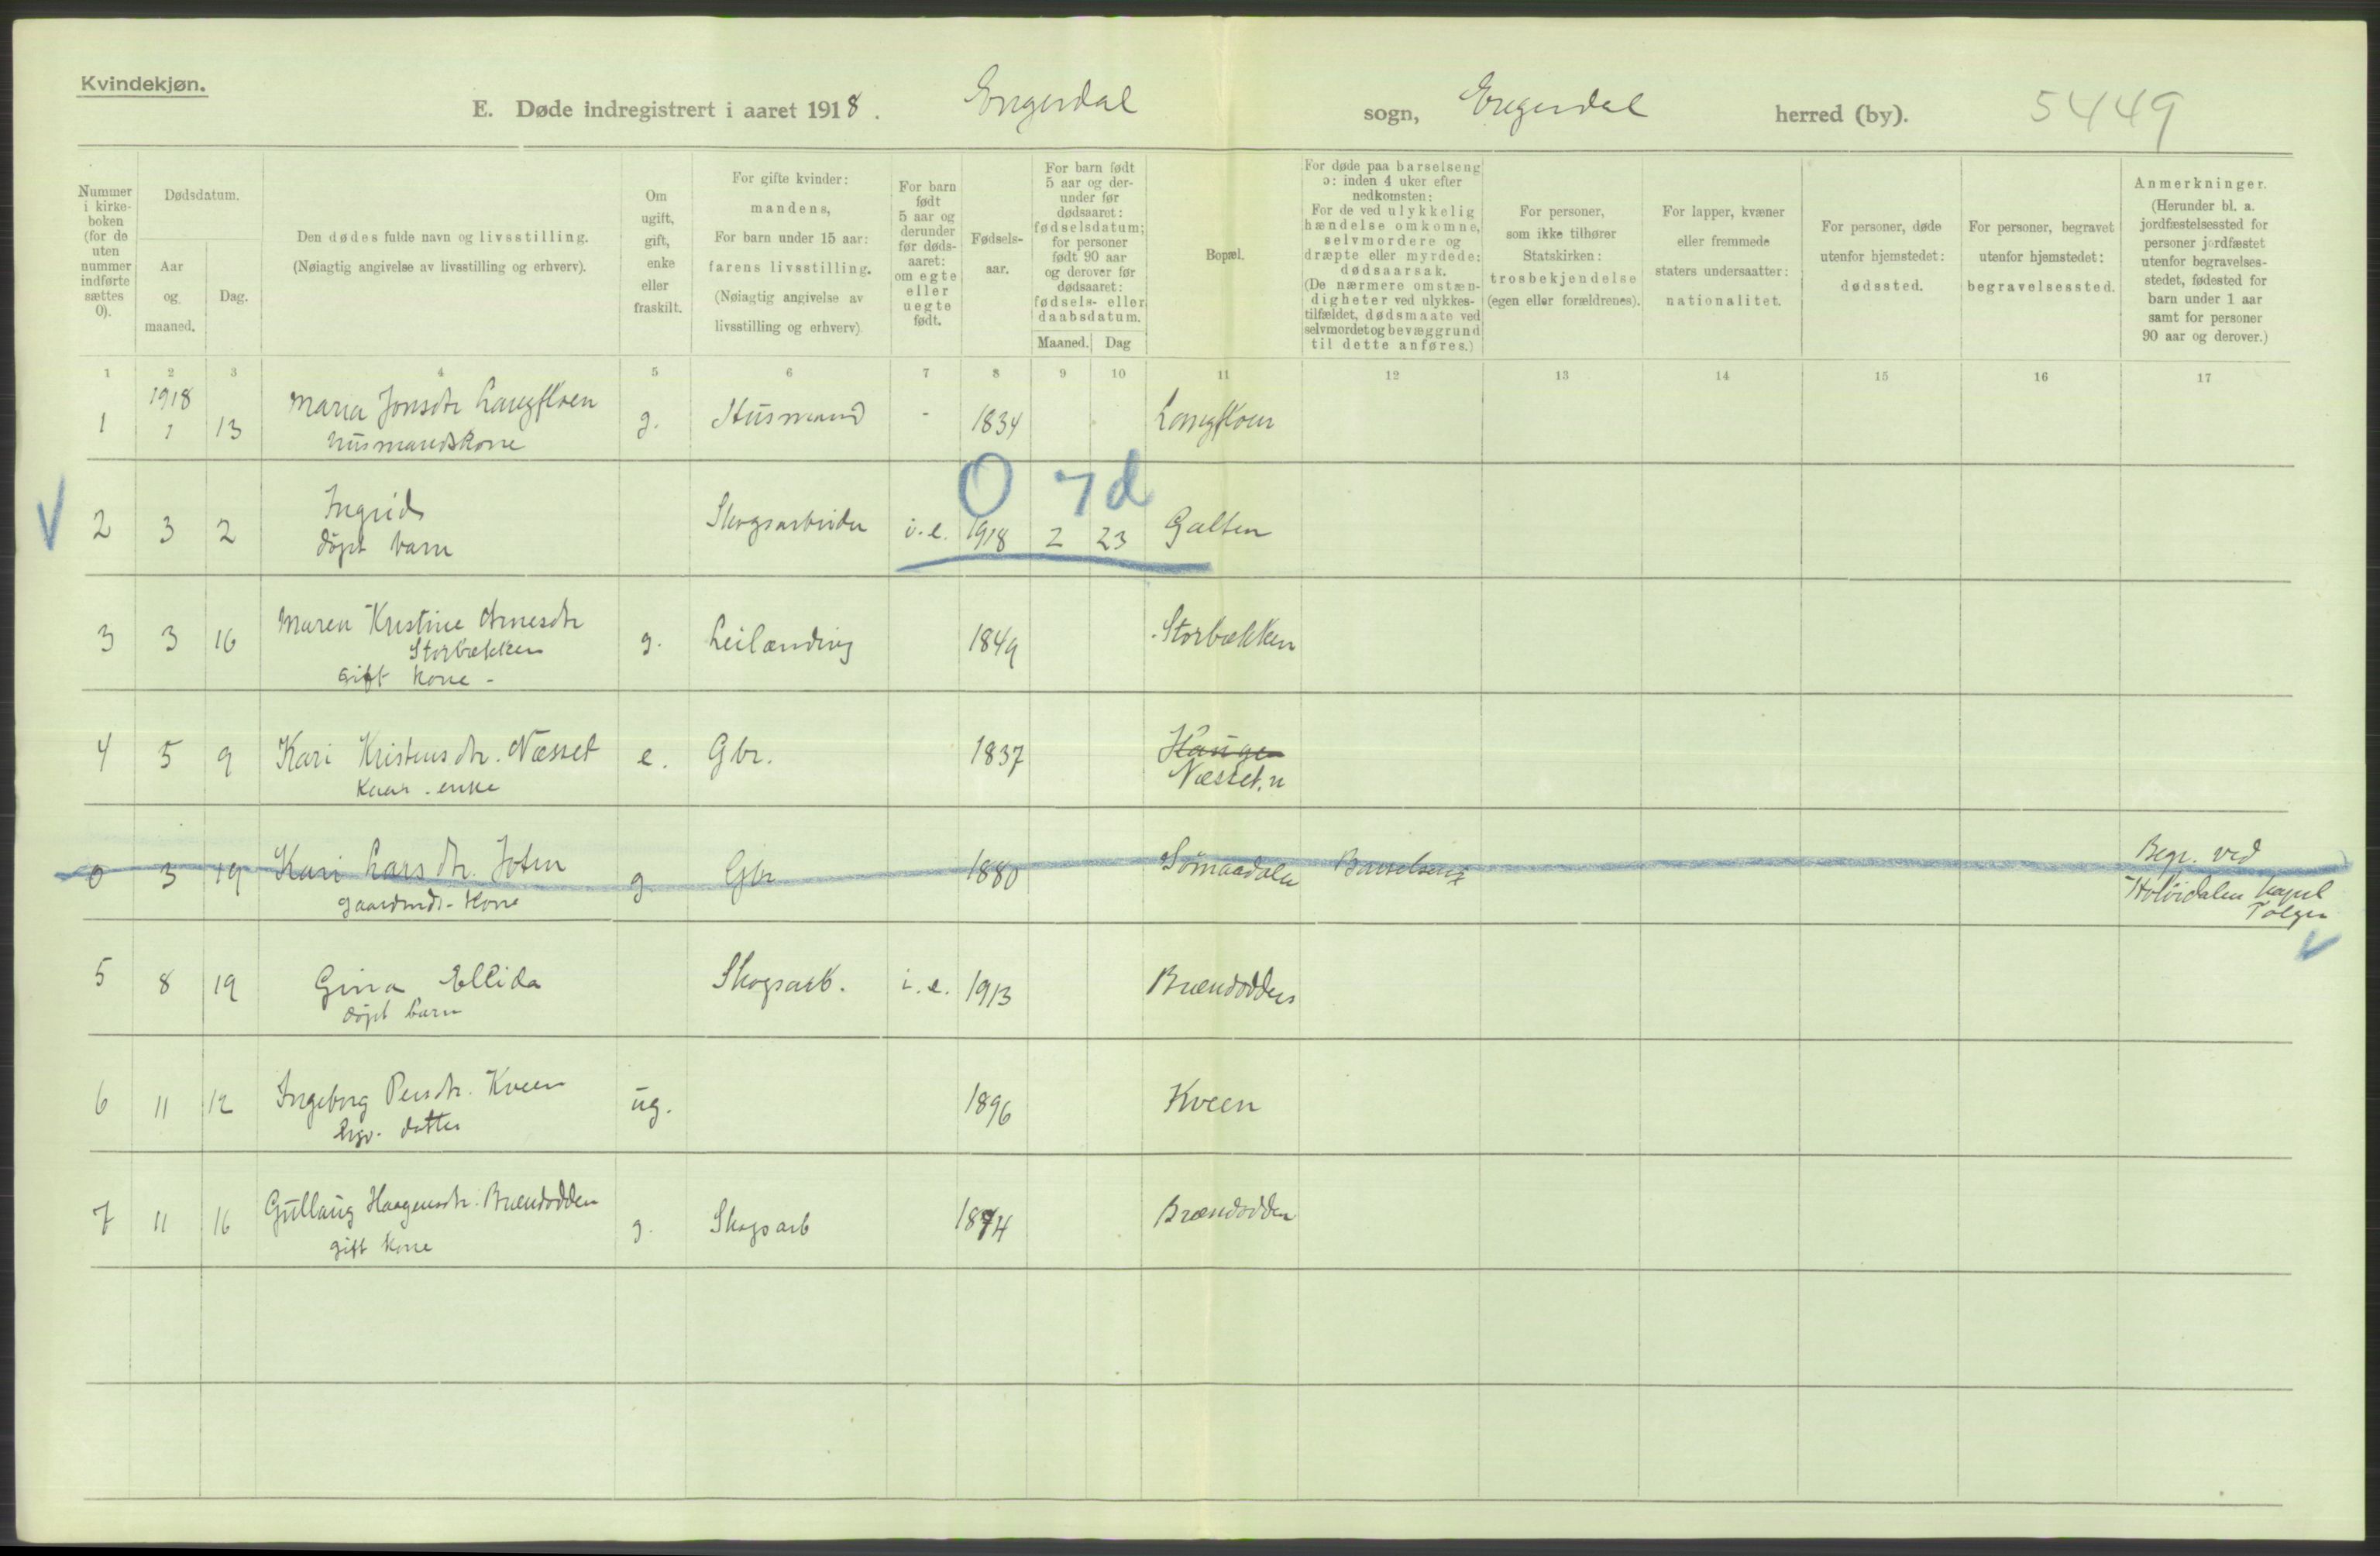 Kvindekjøn.
E. Døde indregistrert i aaret 1918. Engerdal sogn, Engerdal herred (by). 5449
Nummer i kirke-boken (for de uten nummer indførte sættes 0).
Dødsdatum.
Aar og maaned.
Dag.
Den dødes fulde navn og livsstilling.
(Nøiagtig angivelse av livsstilling og erhverv).
Om ugift, gift, enke eller fraskilt.
For gifte kvinder: mandens,
For barn under 15 aar: farens livsstilling.
(Nøiagtig angivelse av livsstilling og erhverv)
For barn født 5 aar og derunder før døds-aaret: om egte eller uegte født.
Fødsels-aar.
For barn født 5 aar og der-under før dødsaaret: fødselsdatum; for personer født 90 aar og derover før dødsaaret: fødsels- eller daabsdatum.
Maaned. Dag
Bopæl.
For døde paa barselseng ɔ: inden 4 uker efter nedkomsten:
For de ved ulykkelig hændelse omkomne, selvmordere og dræpte eller myrdede: dødsaarsak.
(De nærmere omstæn-digheter ved ulykkes-tilfældet, dødsmaate ved selvmordet og bevæggrund til dette anføres.)
For personer, som ikke tilhører Statskirken: trosbekjendelse (egen eller forældrenes).
For lapper, kvæner eller fremmede staters undersaatter: nationalitet.
For personer, døde utenfor hjemstedet: dødssted.
For personer, begravet utenfor hjemstedet: begravelsessted.
Anmerkninger.
(Herunder bl. a. jordfæstelsessted for personer jordfæstet utenfor begravelses-stedet, fødested for barn under 1 aar samt for personer 90 aar og derover.)
1 2 3 4 5 6 7 8 9 10 11 12 13 14 15 16 17
1918
1 1 13 Maria Jonsdtr Langfloen g. Husmand - 1834 Langfloen
husmandskone
0 7d
2 3 2 Ingrid Skogsarbeider i.e. 1918 2 23 Galten
døpt barn
3 3 16 Maren Kristine Arnesdtr g. Leilænding 1849 Storbækken
Storbækken
gift kone -
4 5 9 Kari Kristensdtr. Næsset e. Gbr. 1837 Haugen
Næsset. n
enke
0 3 19 Kari Larsdtr. Joten g Gbr 1880 Sømaadalen Barselseng Begr. ved
gaardmds- kone Holøidalen kapel
Tolgen
5 8 19 Gina Ellida Skogsarb. i.e. 1913 Brændodden
døpt barn
6 11 12 Ingeborg Persdtr. Kveen ug. 1896 Kveen
datter
7 11 16 Gullaug Haagensdtr. Brændodden g. Skogsarb 1874 Brændodden
gift kone